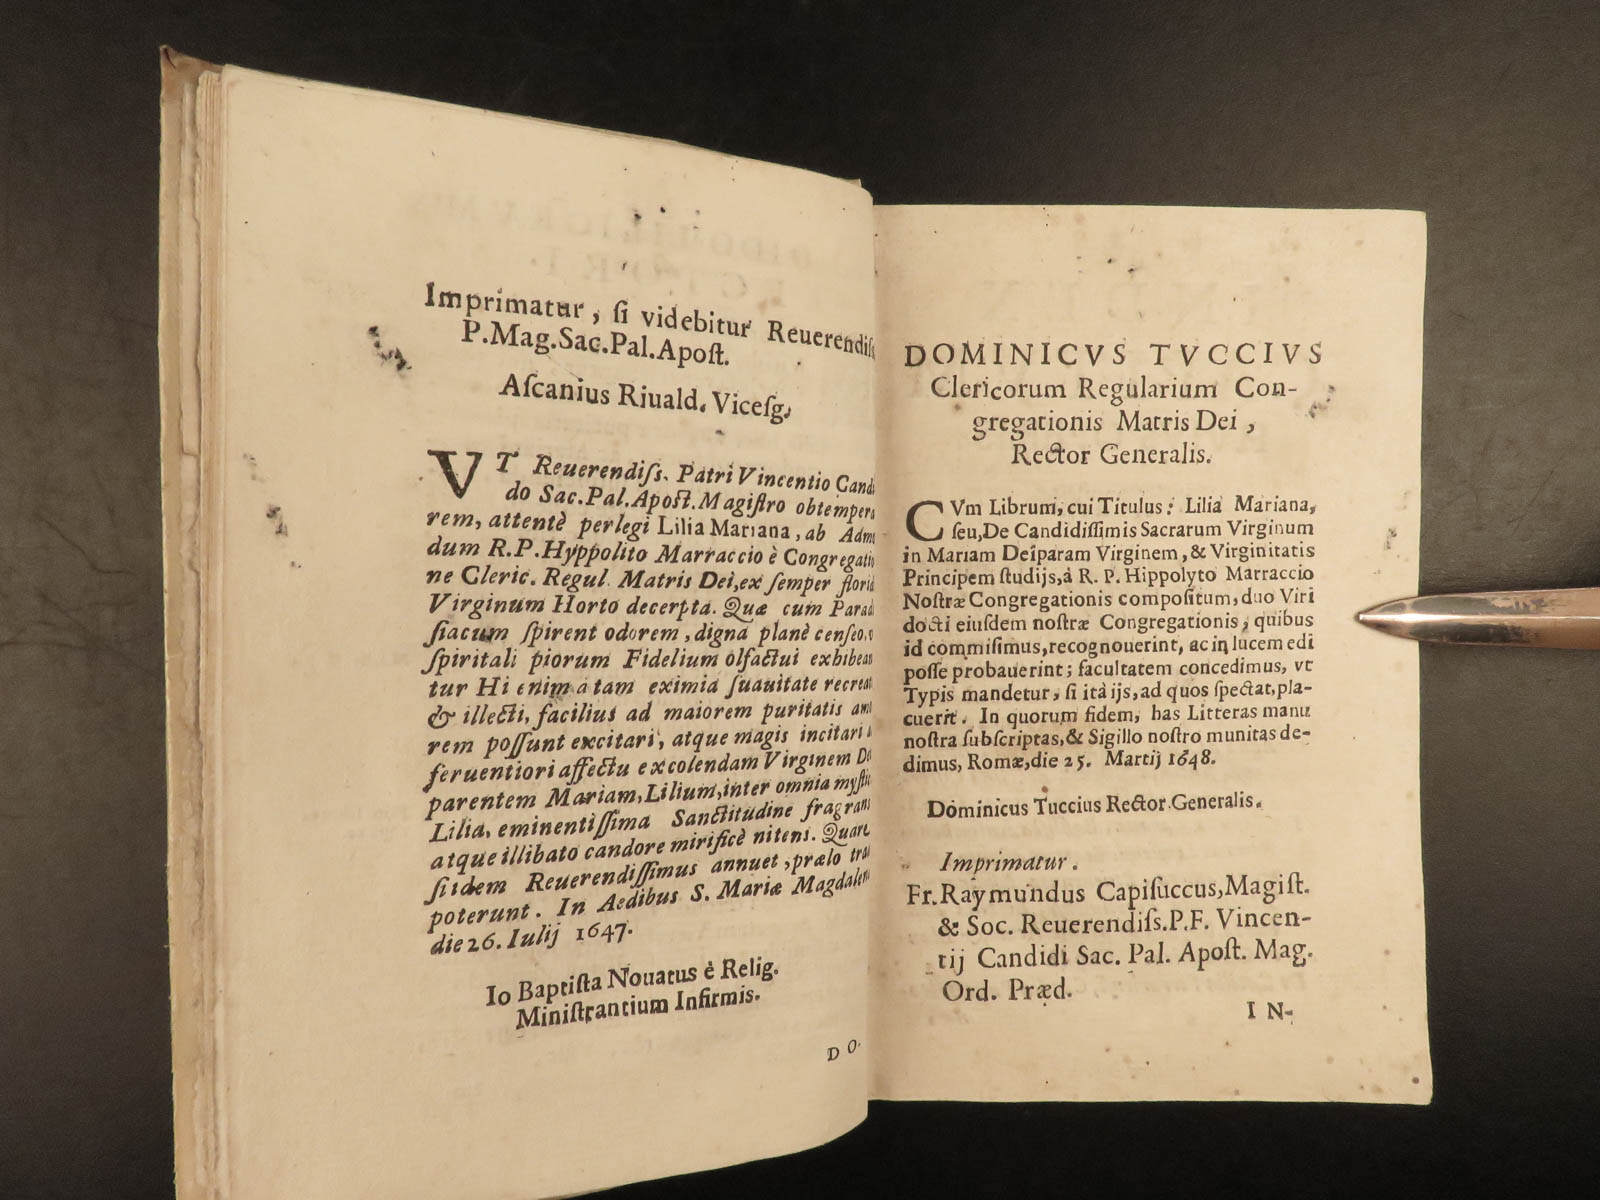 Imprimatur, ſi videbitur Reuerendiſſ.
P.Mag.Sac.Pal.Apoſt.
Aſcanius Riuald. Viceſg.
VT Reuerendiſs. Patri Vincentio Candi
do Sac.Pal.Apoſt.Magiſtro obtempera
rem, attentè perlegi Lilia Mariana, ab Adm
dum R.P.Hyppolito Marraccio è Congregatio
ne Cleric. Regul. Matris Dei, ex ſemper florid
Virginum Horto decerpta. Quæ cum Parad
ſiacum ſpirent odorem, digna planè cenſeo, v
ſpiritali piorum Fidelium olfactui exhibean
tur Hi enim a tam eximia ſuauitate recreat
& illecti, facilius ad maiorem puritatis amo
rem poſſunt excitari, atque magis incitari
feruentiori affectu excolendam Virginem De
parentem Mariam, Lilium, inter omnia myſti
Lilia, eminentiſſima Sanctitudine fragrans
atque illibato candore mirificè nitens. Quare
ſi idem Reuerendiſſimus annuet, prælo tra
poterunt. In Aedibus S. Mariæ Magdalen
die 26. Iulij 1647.
Io Baptiſta Nouatus è Relig.
Miniſtrantium Infirmis.
DO.
DOMINICVS TVCCIVS
Clericorum Regularium Con-
gregationis Matris Dei,
Rector Generalis.
CVm Librum, cui Titulus: Lilia Mariana,
ſeu, De Candidiſſimis Sacrarum Virginum
in Mariam Deiparam Virginem, & Virginitatis
Principem ſtudijs, à R. P. Hippolyto Marraccio
Noſtræ Congregationis compoſitum, duo Viri
docti eiuſdem noſtræ Congregationis, quibus
id commiſimus, recognouerint, ac in lucem edi
poſſe probauerint; facultatem concedimus, vt
Typis mandetur, ſi ità ijs, ad quos ſpectat, pla-
cuerit. In quorum fidem, has Litteras manu
noſtra ſubſcriptas, & Sigillo noſtro munitas de-
dimus, Romæ, die 25. Martij 1648.
Dominicus Tuccius Rector Generalis.
Imprimatur.
Fr. Raymundus Capiſuccus, Magiſt.
& Soc. Reuerendiſs. P. F. Vincen-
tij Candidi Sac. Pal. Apoſt. Mag.
Ord. Præd.
IN-